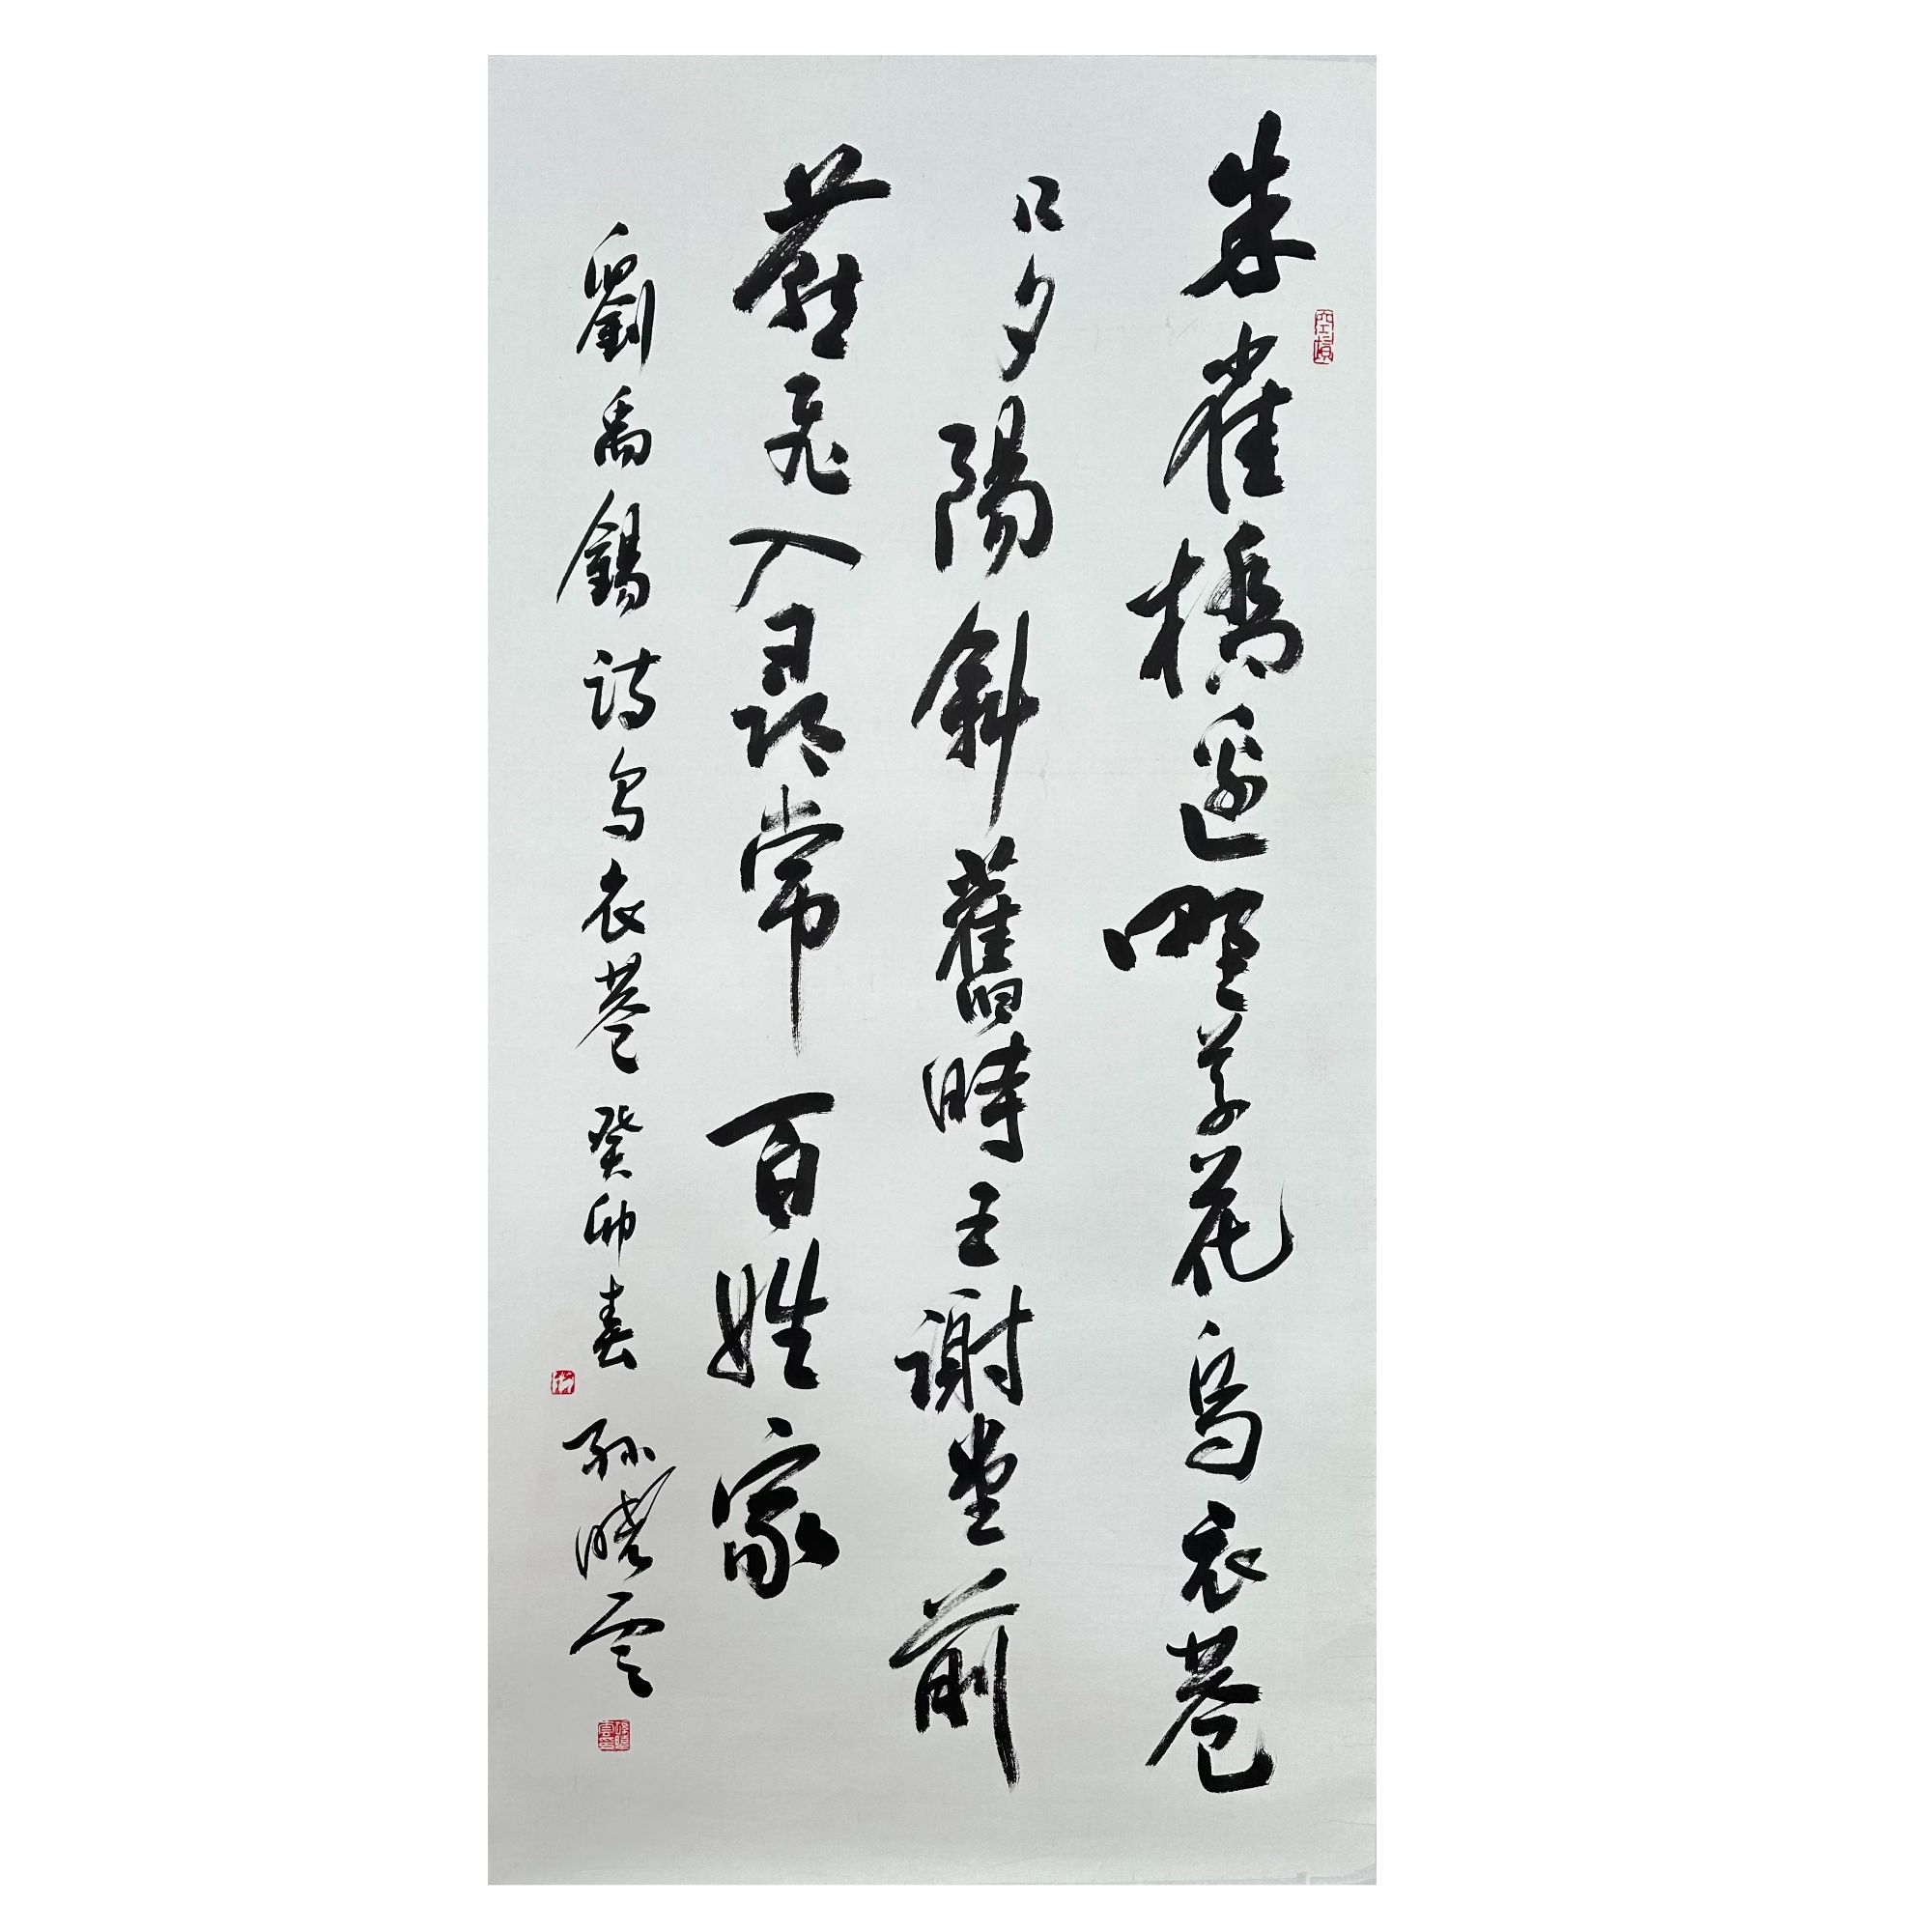 朱雀橋邊野草花烏衣巷
口夕陽斜舊時王謝堂前
燕飛入尋常百姓家
劉禹錫詩烏衣巷 癸卯春 孫曉雲